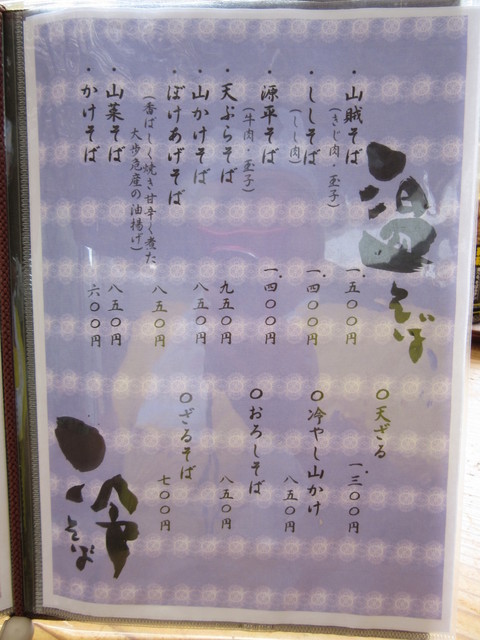 温そば
・山賊そば
(きじ肉・玉子)
一.五〇〇円
・ししそば
(しし肉)
一.四〇〇円
・源平そば
(牛肉・玉子)
一.四〇〇円
・天ぷらそば
九五〇円
・山かけそば
八五〇円
・ぼけあげそば
(香ばしく焼き甘辛く煮た
大歩危産の油揚げ)
八五〇円
・山菜そば
八五〇円
・かけそば
六〇〇円
〇天ざる
一.三〇〇円
〇冷やし山かけ
八五〇円
〇おろしそば
八五〇円
〇ざるそば
七〇〇円
冷そば